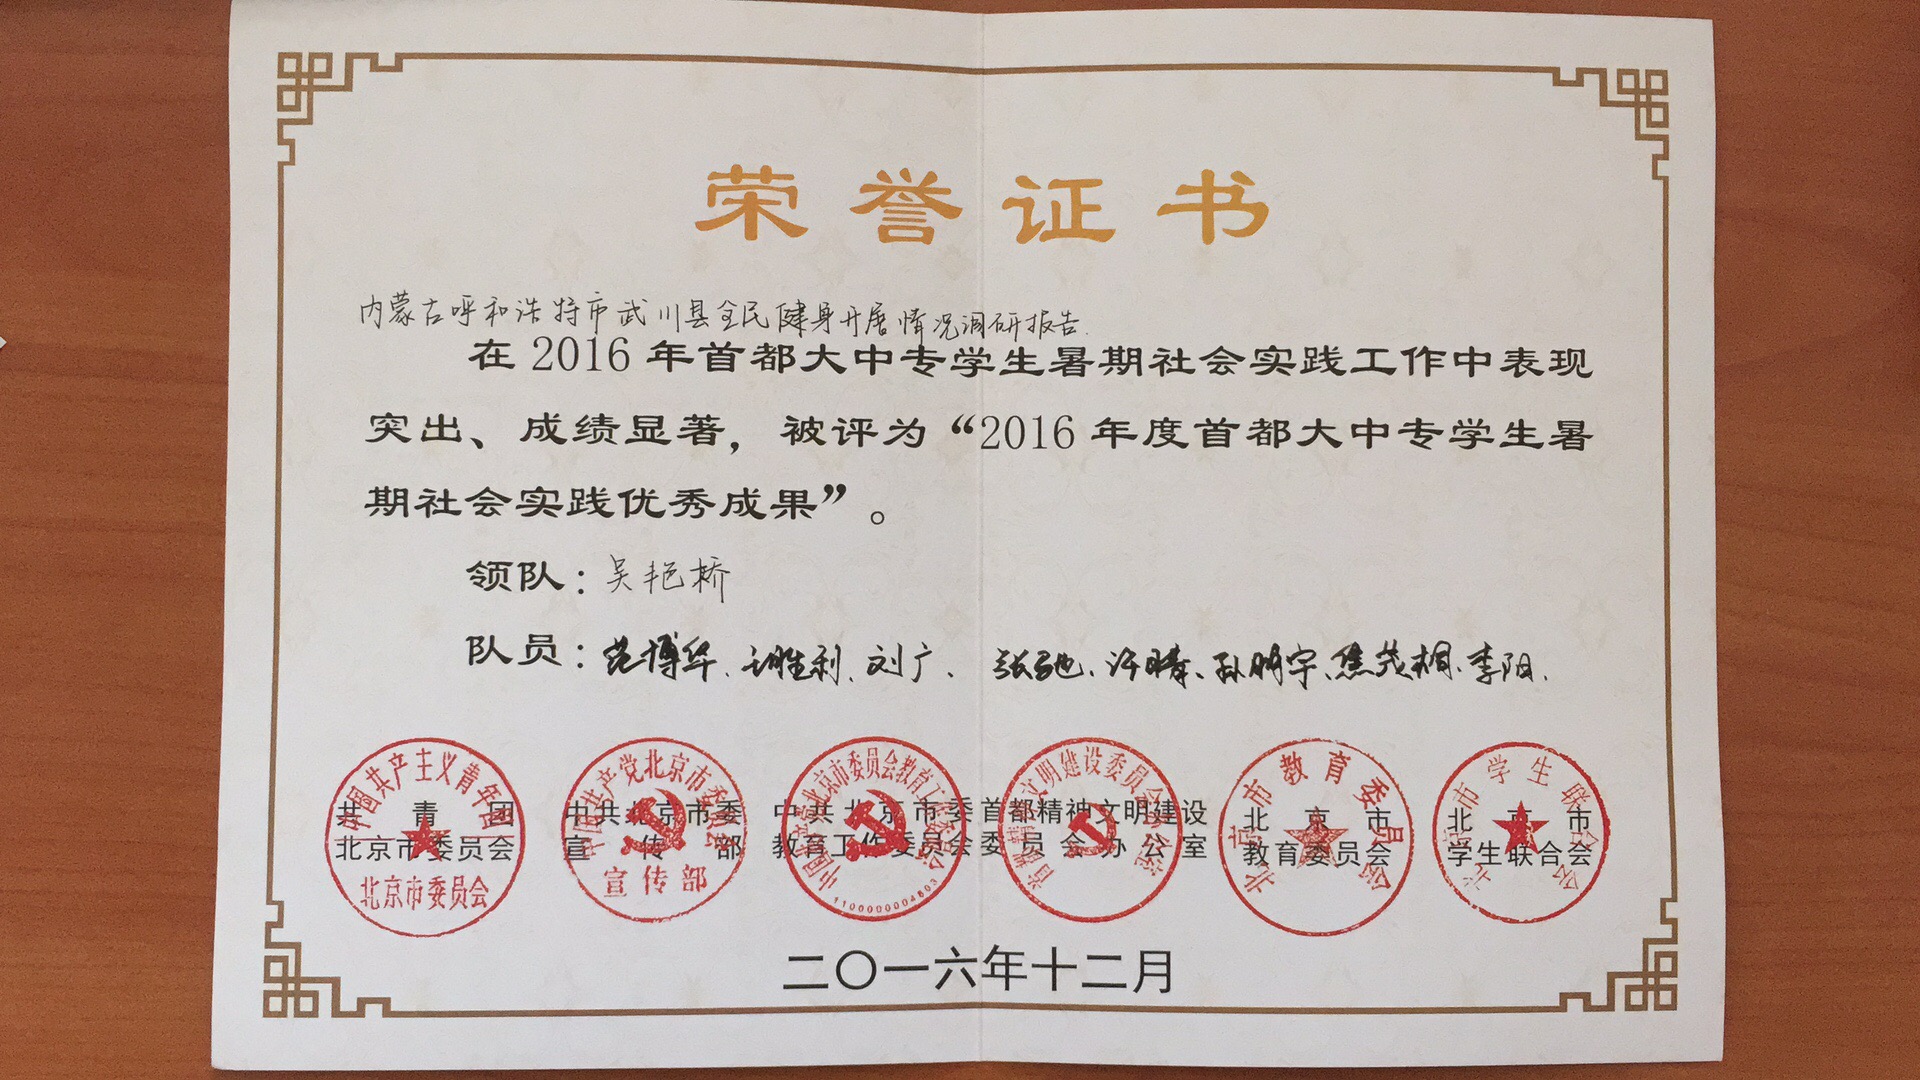 荣誉证书
内蒙古呼和浩特市武川县全民健身开展情况调研报告
在2016年首都大中专学生暑期社会实践工作中表现
突出、成绩显著，被评为“2016年度首都大中专学生暑
期社会实践优秀成果”。
领队：吴艳桥
队员：范博华、胜利、刘广、张弛、许晴、孙明宇、焦茂桐、李阳、
共青团
北京市委员会
中共北京市委
宣传部
中共北京市委
教育工作委员会
首都精神文明建设
委员会办公室
北京市
教育委员会
北京市
学生联合会
中国共产主义青年团
北京市委员会
中国共产党北京市委员会
宣传部
中国共产党北京市委员会教育工作委员会
1100000004803
首都精神文明建设委员会办公室
北京市教育委员会
北京市学生联合会
二〇一六年十二月